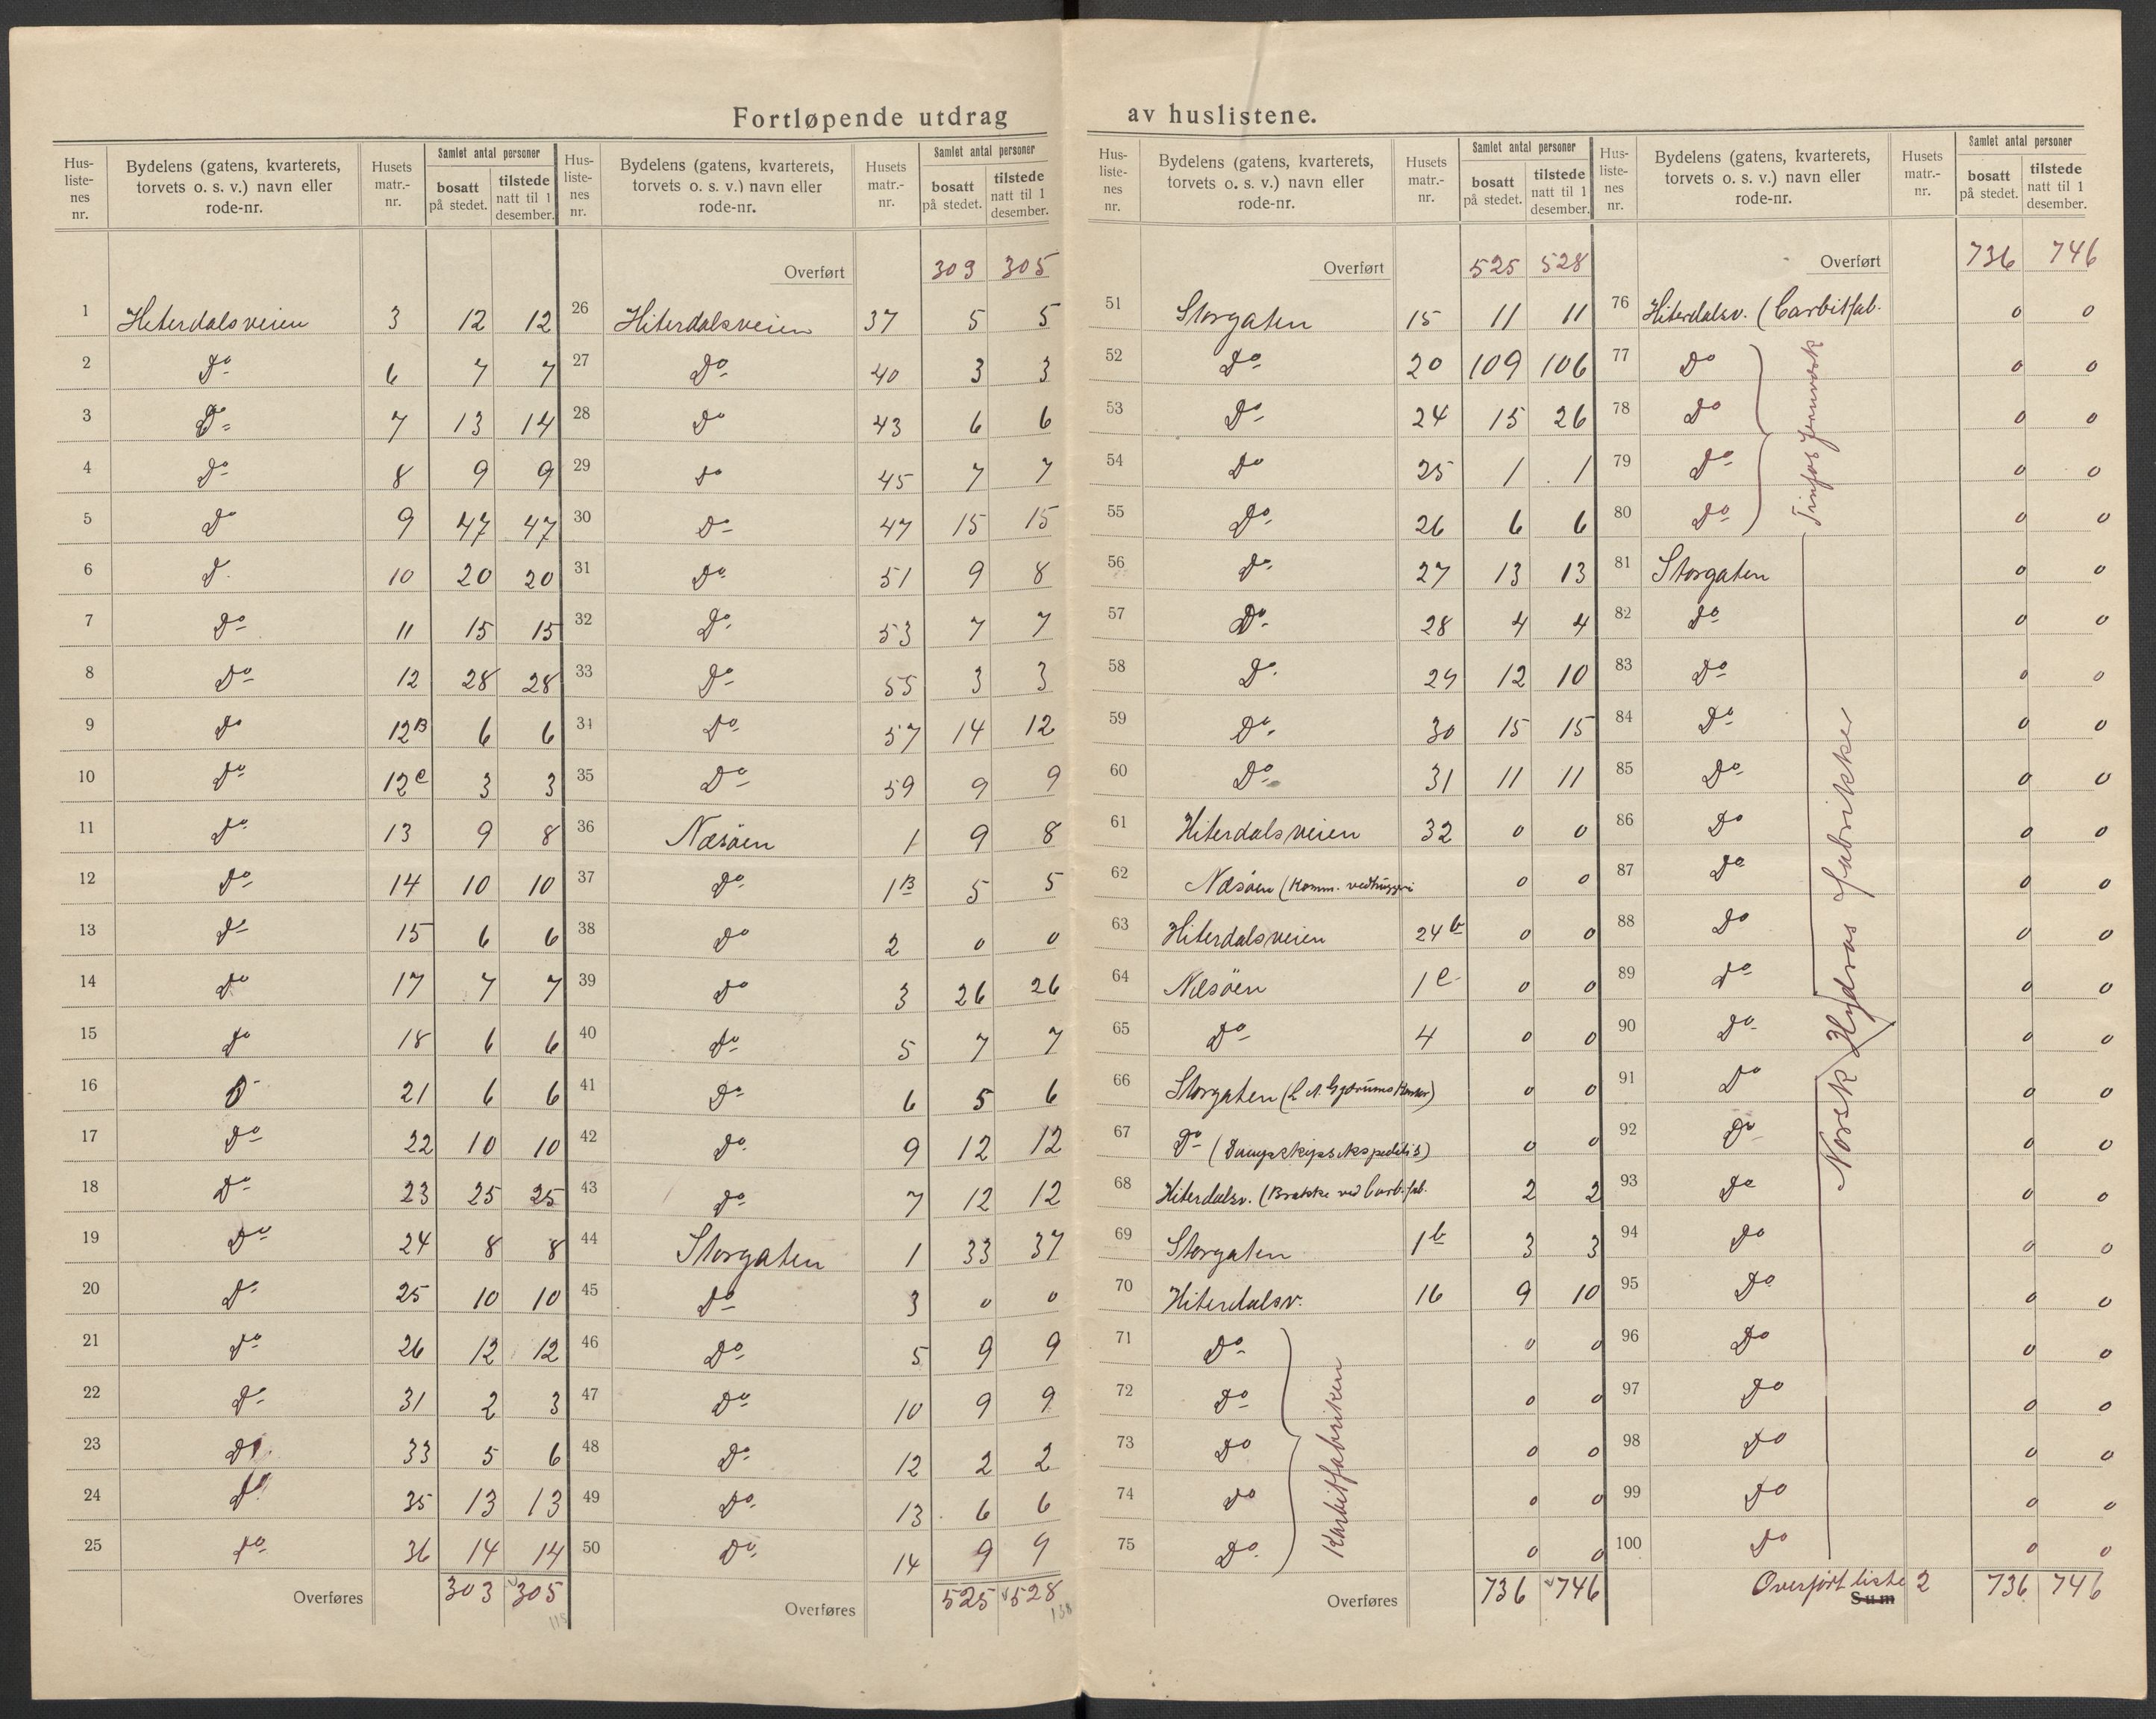 Fortløpende utdrag av huslistene.
Hus-liste-nes nr. | Bydelens (gatens, kvarterets, torvets o. s. v.) navn eller rode-nr. | Husets matr.-nr. | Samlet antal personer | bosatt på stedet. | tilstede natt til 1 desember.
1 Hiterdalsveien 3 12 12
2 Do 6 7 7
3 Do 7 13 14
4 Do 8 9 9
5 Do 9 47 47
6 D. 10 20 20
7 Do 11 15 15
8 Do 12 28 28
9 Do 12B 6 6
10 Do 12c 3 3
11 Do 13 9 8
12 Do 14 10 10
13 Do 15 6 6
14 Do 17 7 7
15 Do 18 6 6
16 D 21 6 6
17 Do 22 10 10
18 Do 23 25 25
19 Do 24 8 8
20 Do 25 10 10
21 Do 26 12 12
22 Do 31 2 3
23 Do 33 5 6
24 Do 35 13 13
25 Do 36 14 14
Overføres 303 305
115
Hus-liste-nes nr. | Bydelens (gatens, kvarterets, torvets o. s. v.) navn eller rode-nr. | Husets matr.-nr. | Samlet antal personer | bosatt på stedet. | tilstede natt til 1 desember.
Overført 303 305
26 Hiterdalsveien 37 5 5
27 Do 40 3 3
28 Do 43 6 6
29 Do 45 7 7
30 Do 47 15 15
31 Do 51 9 8
32 Do 53 7 7
33 Do 55 3 3
34 Do 57 14 12
35 Do 59 9 9
36 Næsöen 1 9 8
37 Do 1B 5 5
38 Do 2 0 0
39 Do 3 26 26
40 Do 5 7 7
41 Do 6 5 6
42 Do 9 12 12
43 Do 7 12 12
44 Storgaten 1 33 37
45 Do 3 0 0
46 Do 5 9 9
47 Do 10 9 9
48 Do 12 2 2
49 Do 13 6 6
50 Do 14 9 9
Overføres 525 528
Hus-liste-nes nr. | Bydelens (gatens, kvarterets, torvets o. s. v.) navn eller rode-nr. | Husets matr.-nr. | Samlet antal personer | bosatt på stedet. | tilstede natt til 1 desember.
Overført 525 528
51 Storgaten 15 11 11
52 Do 20 109 106
53 Do 24 15 26
54 Do 25 1 1
55 Do 26 6 6
56 Do 27 13 13
57 Do 28 4 4
58 Do 29 12 10
59 Do 30 15 15
60 Do 31 11 11
61 Hiterdalsveien 32 0 0
62 Næsöen (Komm. vedhuggeri 0 0
63 Hiterdalsveien 24b 0 0
64 Næsöen 1c 0 0
65 Do 4 0 0
66 Storgaten (L A. 0 0
67 Do (Dampskipsekspeditis) 0 0
68 Hiterdalsv. (Brakke ved Carb.fab. 2 2
69 Storgaten 1b 3 3
70 Hiterdalsv. 16 9 10
71 Do 0 0
72 Do 0 0
73 Do 0 0
74 Do 0 0
75 Do 0 0
Karbitfabriken
Overføres 736 746
Hus-liste-nes nr. | Bydelens (gatens, kvarterets, torvets o. s. v.) navn eller rode-nr. | Husets matr.-nr. | Samlet antal personer | bosatt på stedet. | tilstede natt til 1 desember.
Overført 736 746
76 Hiterdalsv. (Carbitfab. 0 0
77 Do 0 0
78 Do 0 0
79 Do 0 0
80 Do 0 0
Tinfos Jernverk
81 Storgaten 0 0
82 Do 0 0
83 Do 0 0
84 Do 0 0
85 Do 0 0
86 Do 0 0
87 Do 0 0
88 Do 0 0
89 Do 0 0
90 Do 0 0
91 Do 0 0
92 Do 0 0
93 Do 0 0
94 Do 0 0
95 Do 0 0
96 Do 0 0
97 Do 0 0
98 Do 0 0
99 Do 0 0
100 Do 0 0
Norsk Hydros fabrikker
Overført liste 2 736 746
Sum